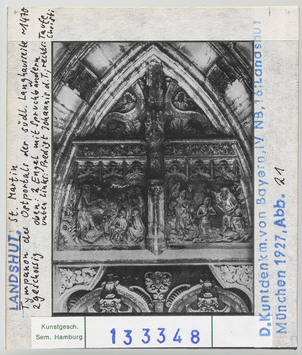 LANDSHUT, St. Martin
Tympanon des Ostportals der südl. Langhausseite ~1470
2geschossig
oben: 2 Engel mit Spruchbändern
unten links: Predigt Johannis d. T., rechts: Taufe
Christi
D. Kunstdenkm. von Bayern, IV NB, 16: Landshut
München 1927, Abb. 21
Kunstgesch.
Sem. Hamburg
133348